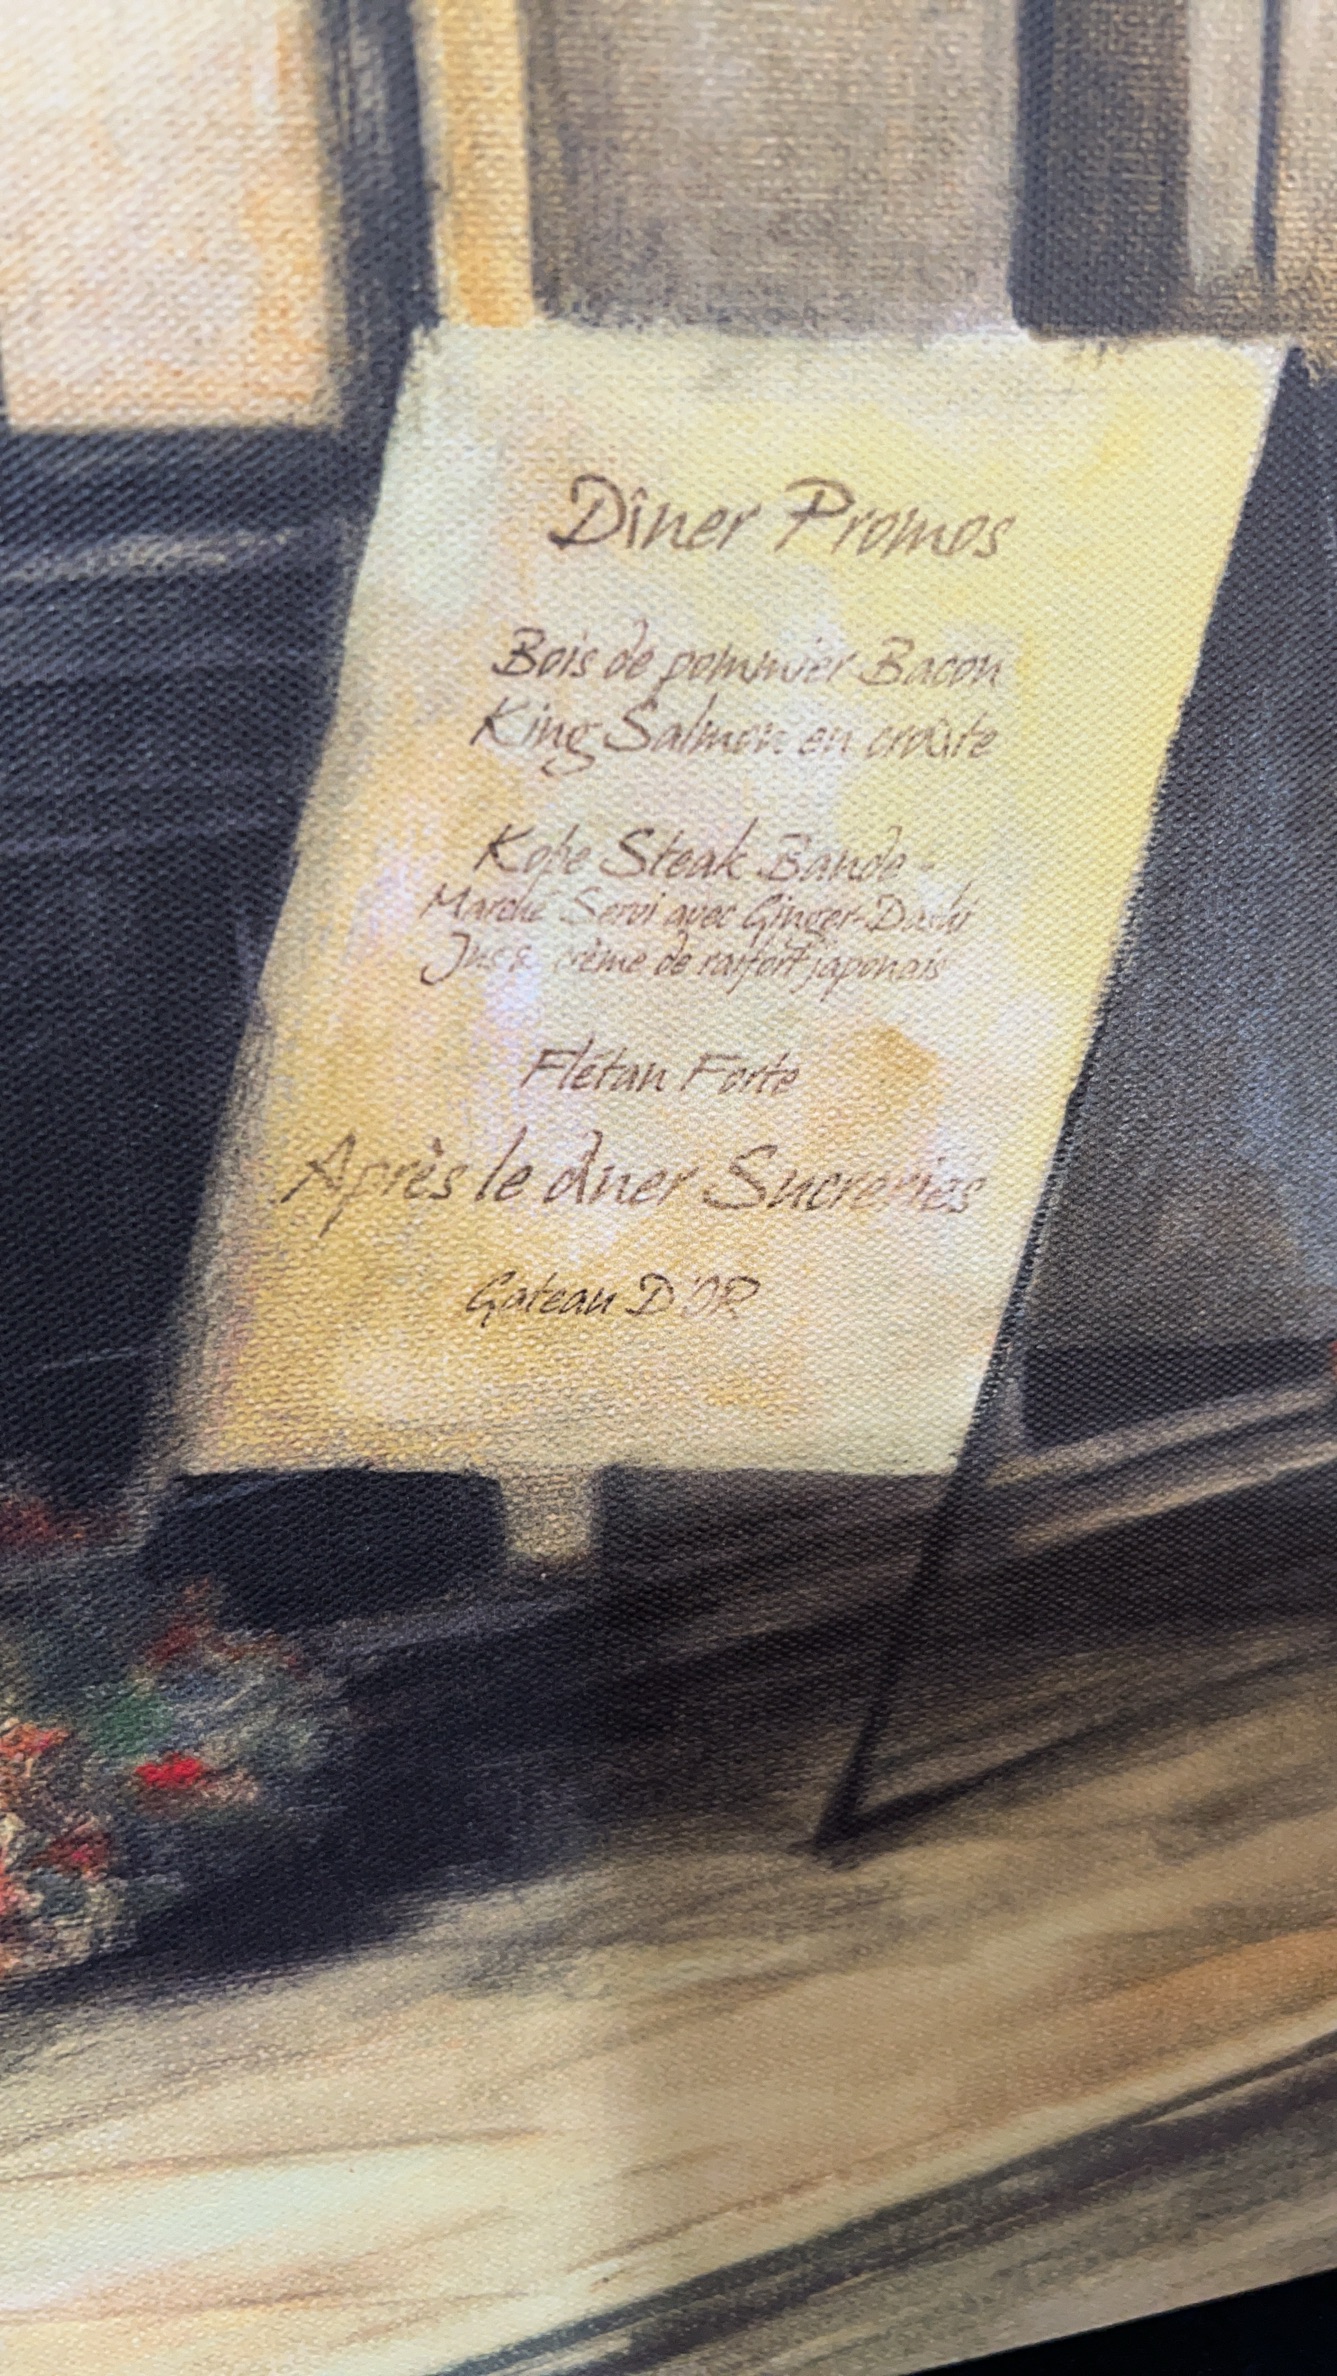 Dîner Promos
Bois de pommier Bacon
King Salmon en croûte
Kobe Steak Bande -
Marché Servi avec Ginger-Dashi
Jus & crème de raifort japonais
Flétan Forte
Après le dîner Sucreries
Gateau D'OR